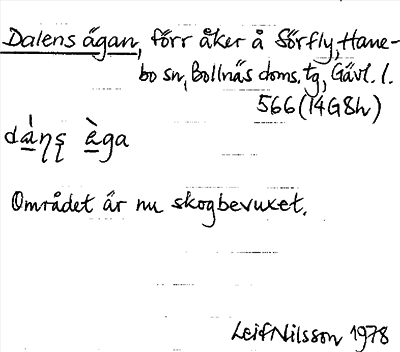 Dalens ägan, förr åker å Sörfly, Hane-
bo sn, Bollnäs doms. tg, Gävl. l.
566 (14G8h)
dàŋş ɛ̀ga
Området är nu skogbevuxet.
Leif Nilsson 1978